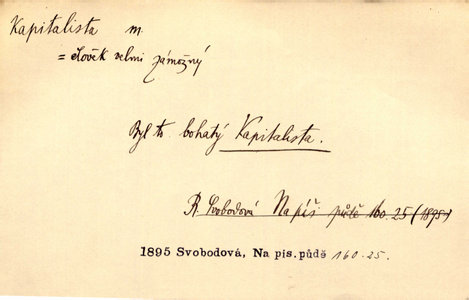 Kapitalista m.
= člověk velmi zámožný
Byl to bohatý Kapitalista.
R. Svobodová Na píš. půdě 160.25 (1895)
1895 Svobodová, Na pís. půdě 160.25.